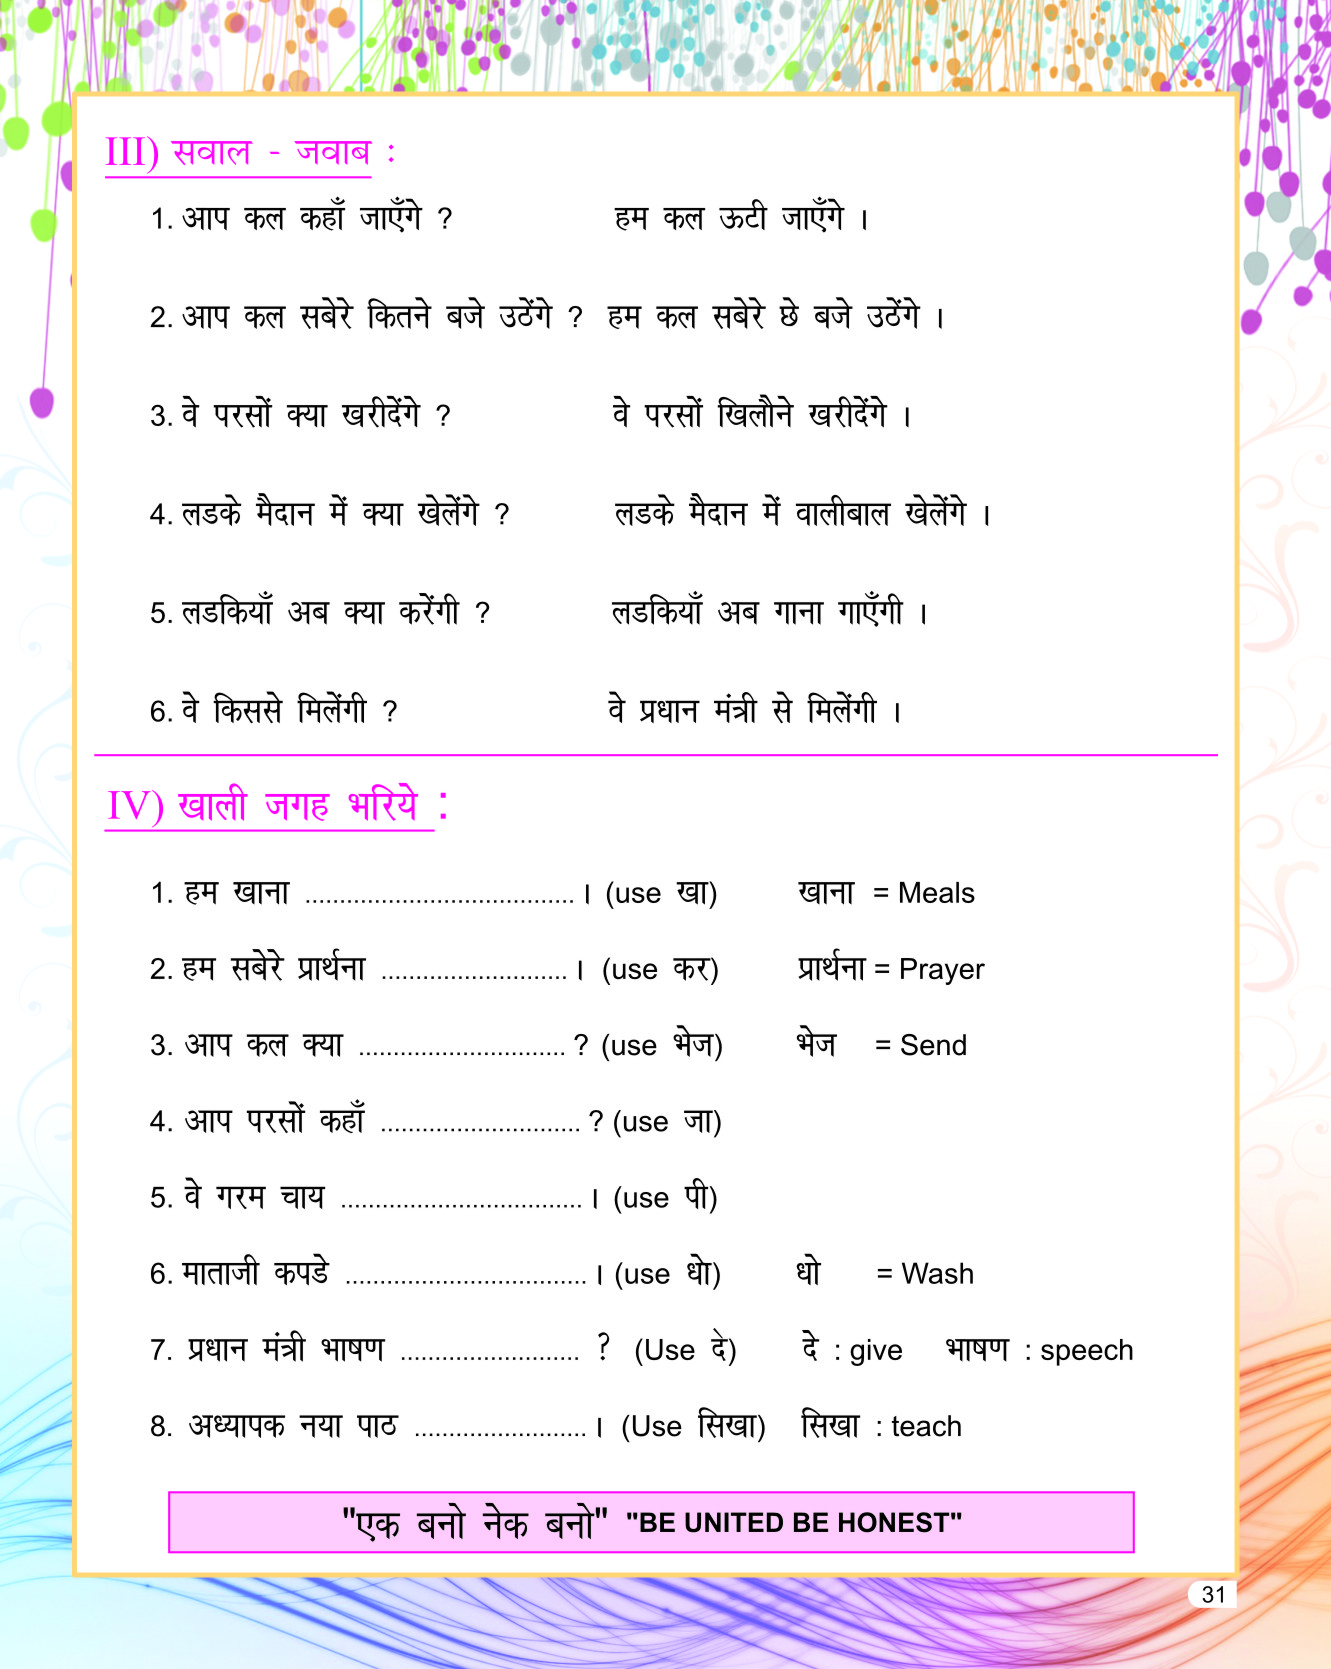 III) सवाल - जवाब :
1. आप कल कहाँ जाएँगे ? हम कल ऊटी जाएँगे ।
2. आप कल सबेरे कितने बजे उठेंगे ? हम कल सबेरे छे बजे उठेंगे ।
3. वे परसों क्या खरीदेंगे ? वे परसों खिलौने खरीदेंगे ।
4. लडके मैदान में क्या खेलेंगे ? लडके मैदान में वालीबाल खेलेंगे ।
5. लडकियाँ अब क्या करेंगी ? लडकियाँ अब गाना गाएँगी ।
6. वे किससे मिलेंगी ? वे प्रधान मंत्री से मिलेंगी ।
IV) खाली जगह भरिये :
1. हम खाना ....................................... । (use खा) खाना = Meals
2. हम सबेरे प्रार्थना ........................... । (use कर) प्रार्थना = Prayer
3. आप कल क्या .............................. ? (use भेज) भेज = Send
4. आप परसों कहाँ ............................. ? (use जा)
5. वे गरम चाय ................................... । (use पी)
6. माताजी कपडे ................................... । (use धो) धो = Wash
7. प्रधान मंत्री भाषण .......................... ? (Use दे) दे : give भाषण : speech
8. अध्यापक नया पाठ ......................... । (Use सिखा) सिखा : teach
"एक बनो नेक बनो" "BE UNITED BE HONEST"
31